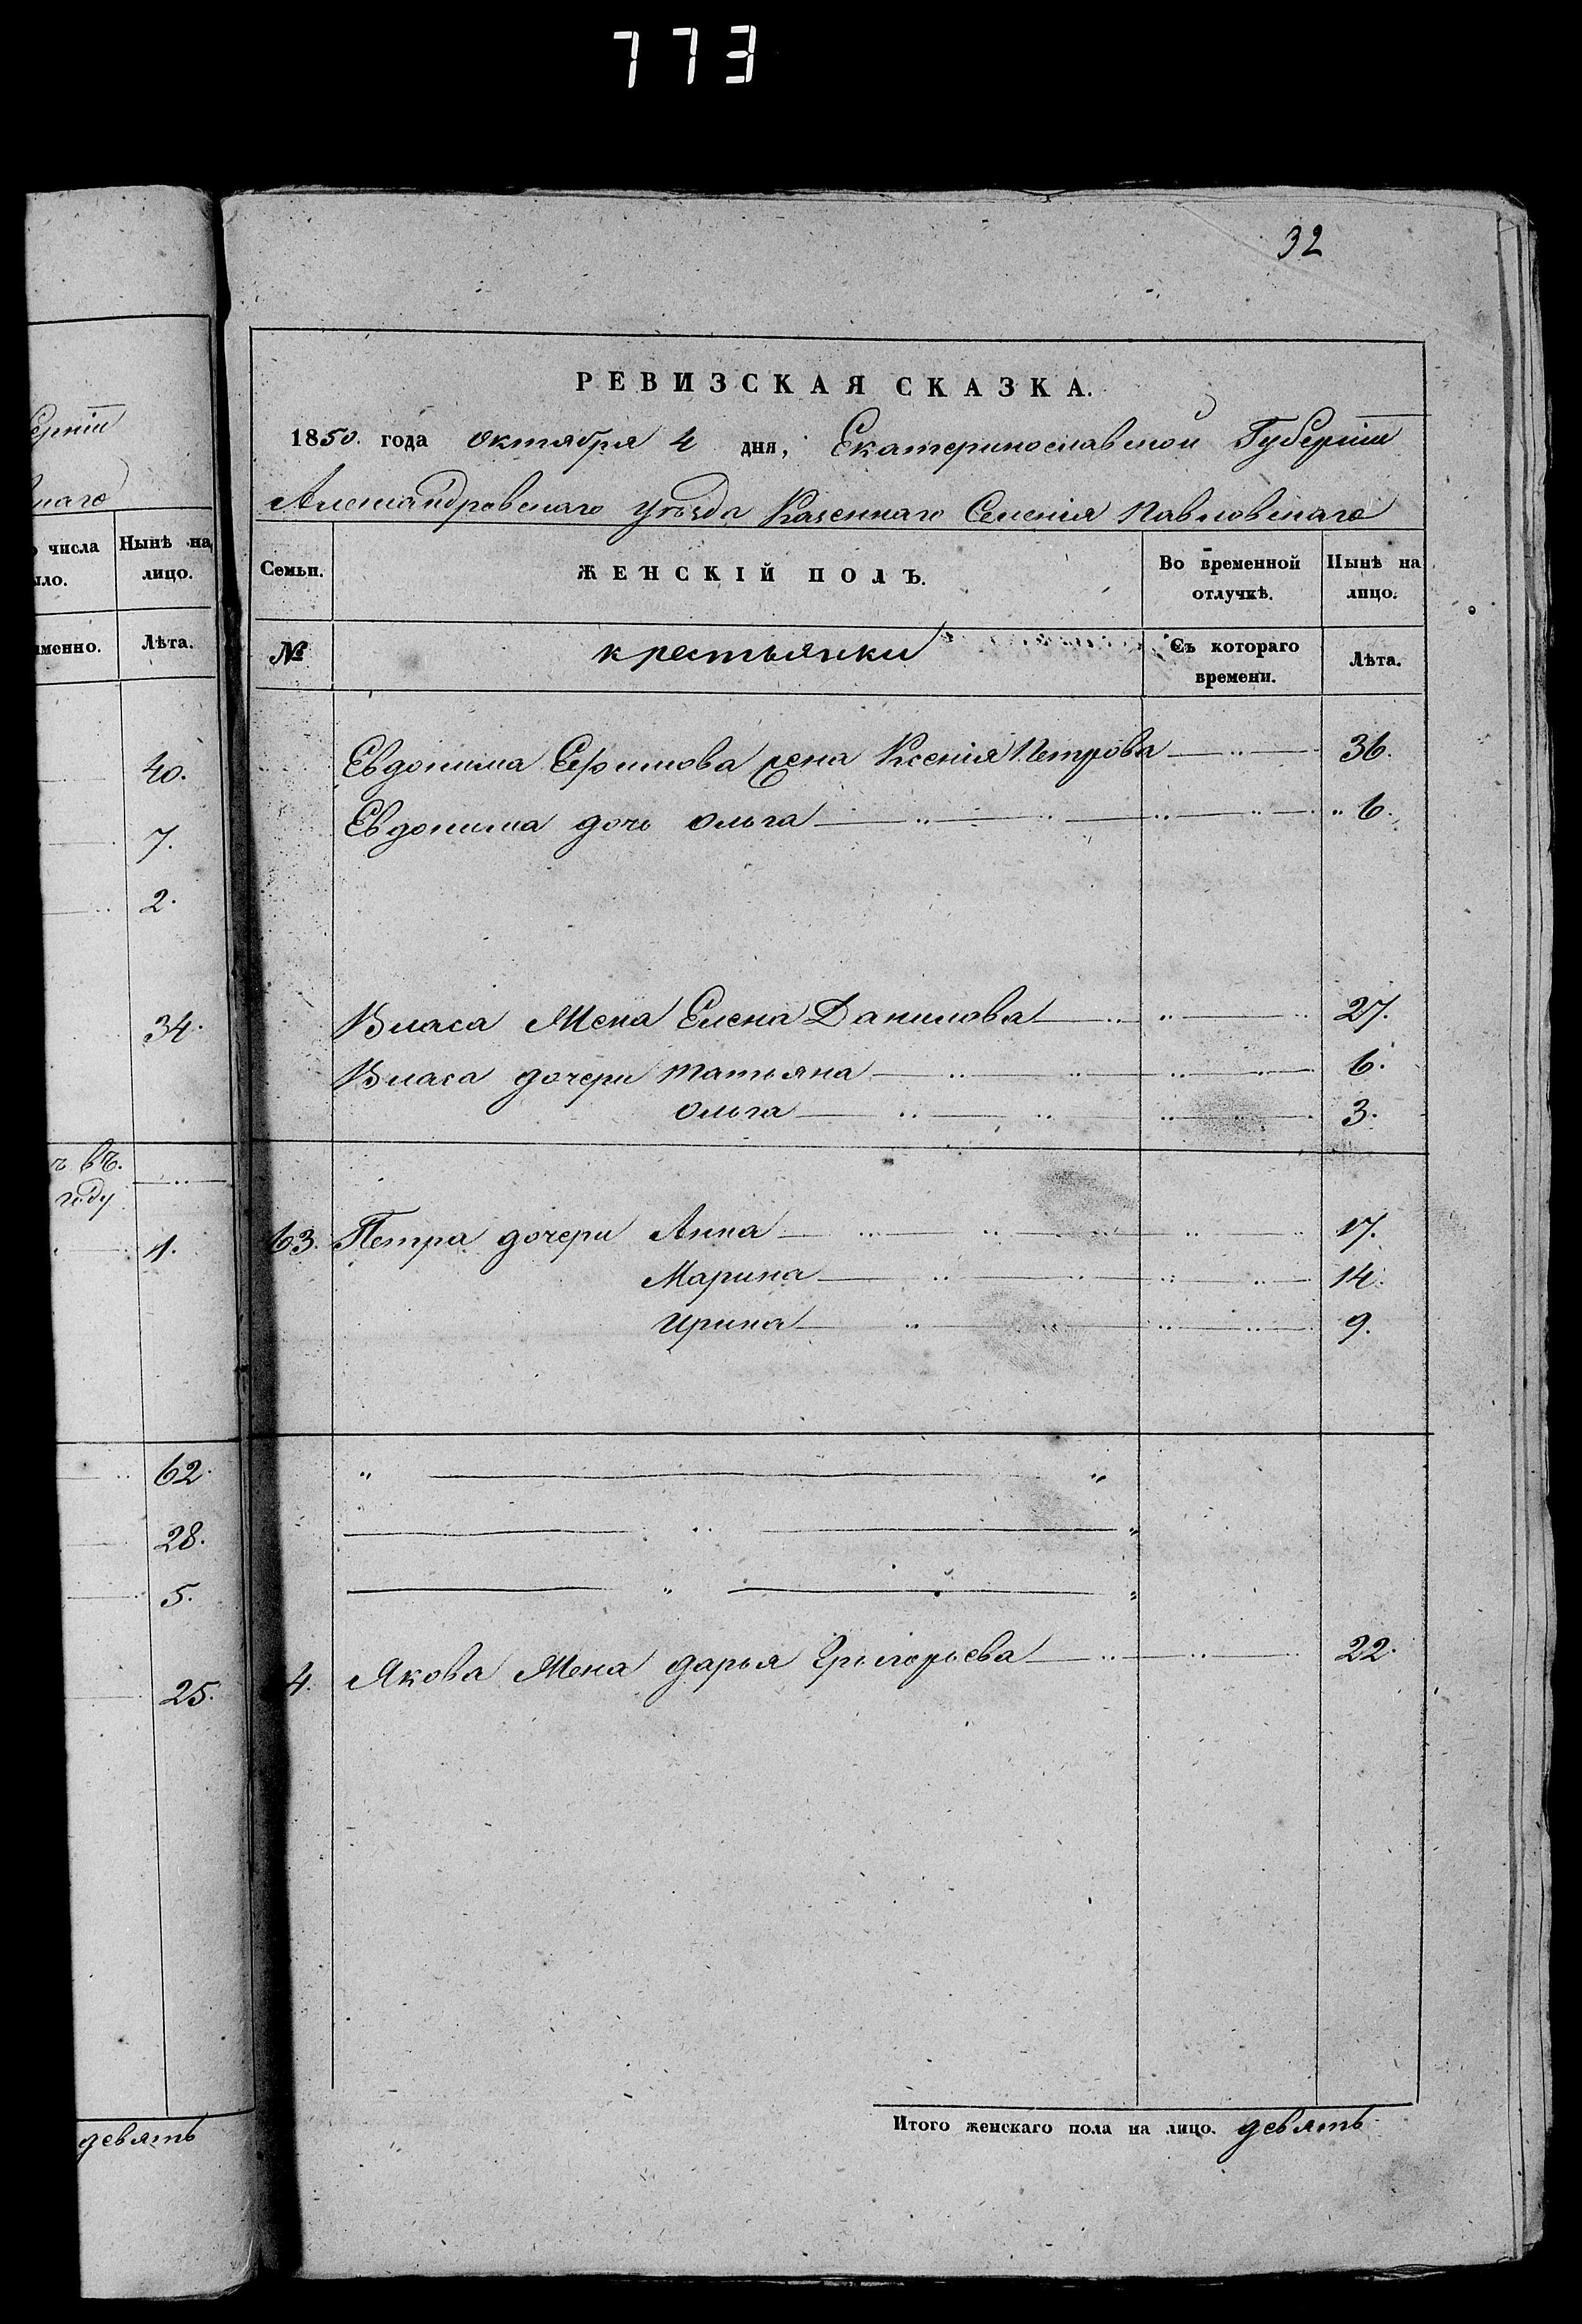 773
32
ерніи
наго
РЕВИЗСКАЯ СКАЗКА.
1850. года Октября 4 дня, Екатеринославской Губерніи
Александровскаго уѣзда Казеннаго Селенія Павловскаго
числа
ыло.
Нынѣ на
лицо.
именно.
Лѣта.
Семьи.
ЖЕНСКІЙ ПОЛЪ.
Во временной
отлучкѣ.
Нынѣ на
лицо.
№
крестьянки
Съ котораго
времени.
Лѣта.
40.
7.
2.
34.
въ
году
1.
62.
28.
5.
25.
девять
Евдокима Ефимова жена Ксенія Петрова 36.
Евдокима дочь Ольга 6.
Власа Жена Елена Данилова 27.
Власа дочери Татьяна 6.
Ольга 3.
63. Петра дочери Анна 17.
Марина 14.
Ирина 9.
4. Якова Жена Дарья Григорьева 22.
Итого женскаго пола на лицо. девять